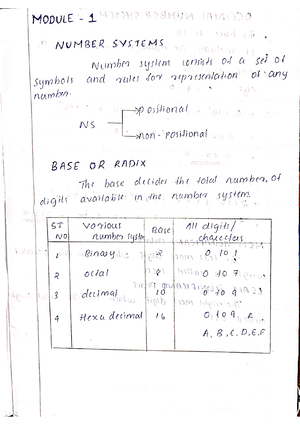 MODULE - 1
NUMBER SYSTEMS
Number system consists of a set of
symbols and rules for representation of any
number.
NS
positional
non-positional
BASE OR RADIX
The base decides the total number of
digits available in the number system.
ST NO
Various number system
Base
All digits/ characters
1 Binary 2 0 to 1
2 octal 8 0 to 7
3 decimal 10 0 to 9
4 Hexadecimal 16 0 to 9
A, B, C, D, E, F